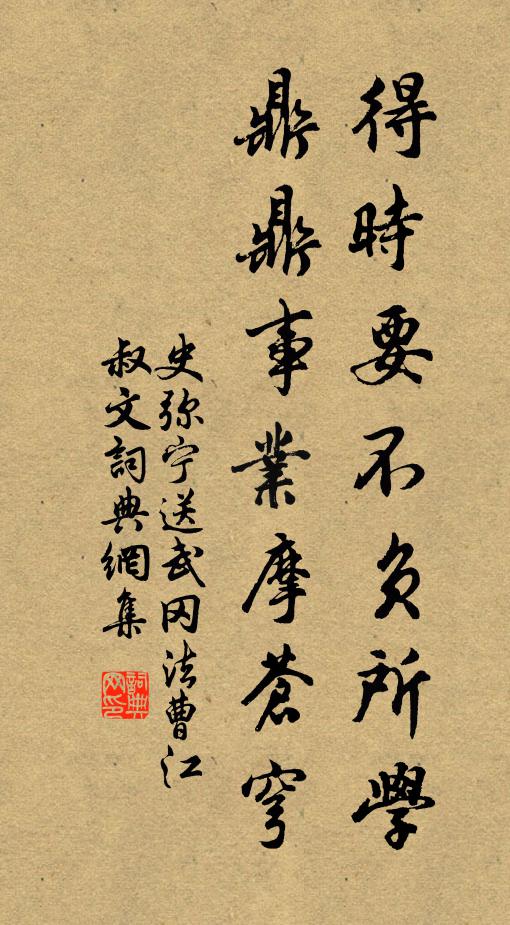 得時要不负所學
鼎鼎事業摩蒼穹
史弥宁送武冈法曹江
叔文詞典網集
詞典网印